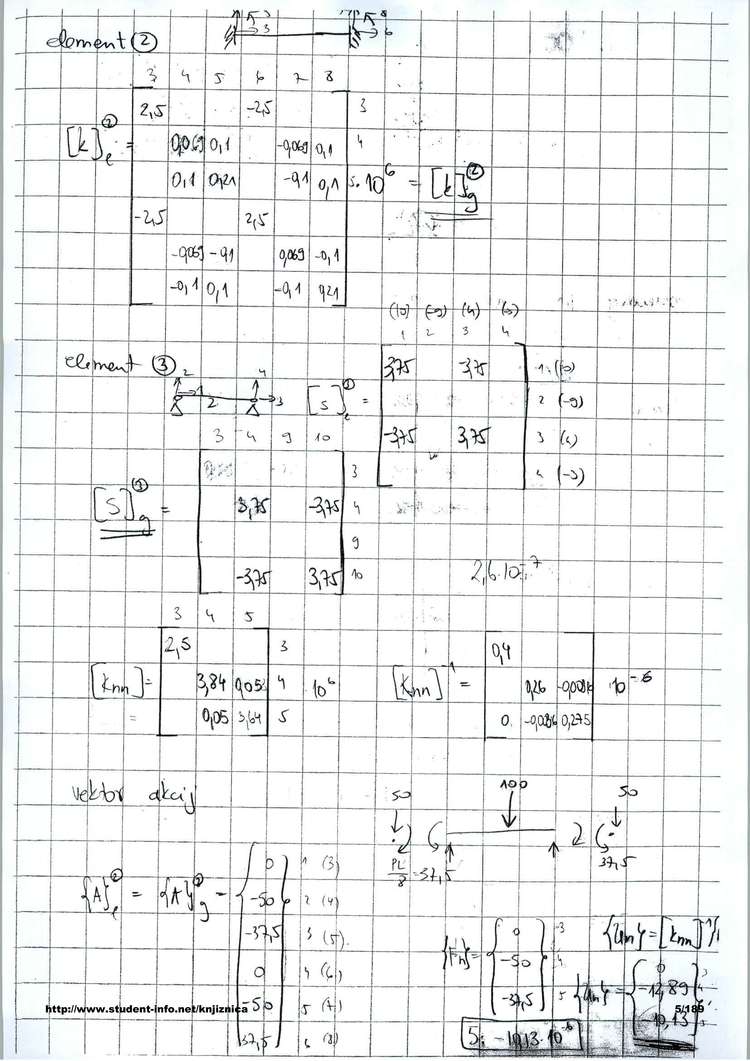 3 8
3 6
element (2)
3 4 5 6 7 8
2,5 -2,5 3
0,069 0,1 -0,069 0,1 4
[k]e(2)
0,1 0,21 -0,1 0,1 5 · 10^6 = [k]g(2)
-2,5 2,5
-0,069 -0,1 0,069 -0,1
-0,1 0,1 -0,1 0,21
(10) (-9) (4) (-3)
1 2 3 4
element (3) 2 4 1 2 3
[S]e(3) =
3,75 -3,75 1
2 (-9)
-3,75 3,75 3 (4)
4 (-3)
3 4 9 10
3
[S]g(3) = 3,75 -3,75 4
9
-3,75 3,75 10
2,6·10^-7
3 4 5
2,5 3
[Knn] = 3,84 0,05 4 10^6
= 0,05 3,64 5
[Knn]^-1 =
0,4
0,26 -0,0036 10^-6
0. -0,0036 0,275
vektor akcij
50 100 50
PL/8 = 37,5 37,5
{A}e(2) = {A}g(2) =
0 1 (3)
-50 2 (4)
-37,5 3 (5)
0 4 (6)
-50 5 (7)
37,5 6 (8)
{Fn} =
0 3
-50 4
-37,5 5
{Un} = [Knn]^-1
{Un} =
0 3
-12,89
-10,13
5: -10,13·10^-6
http://www.student-info.net/knjiznica
5/189